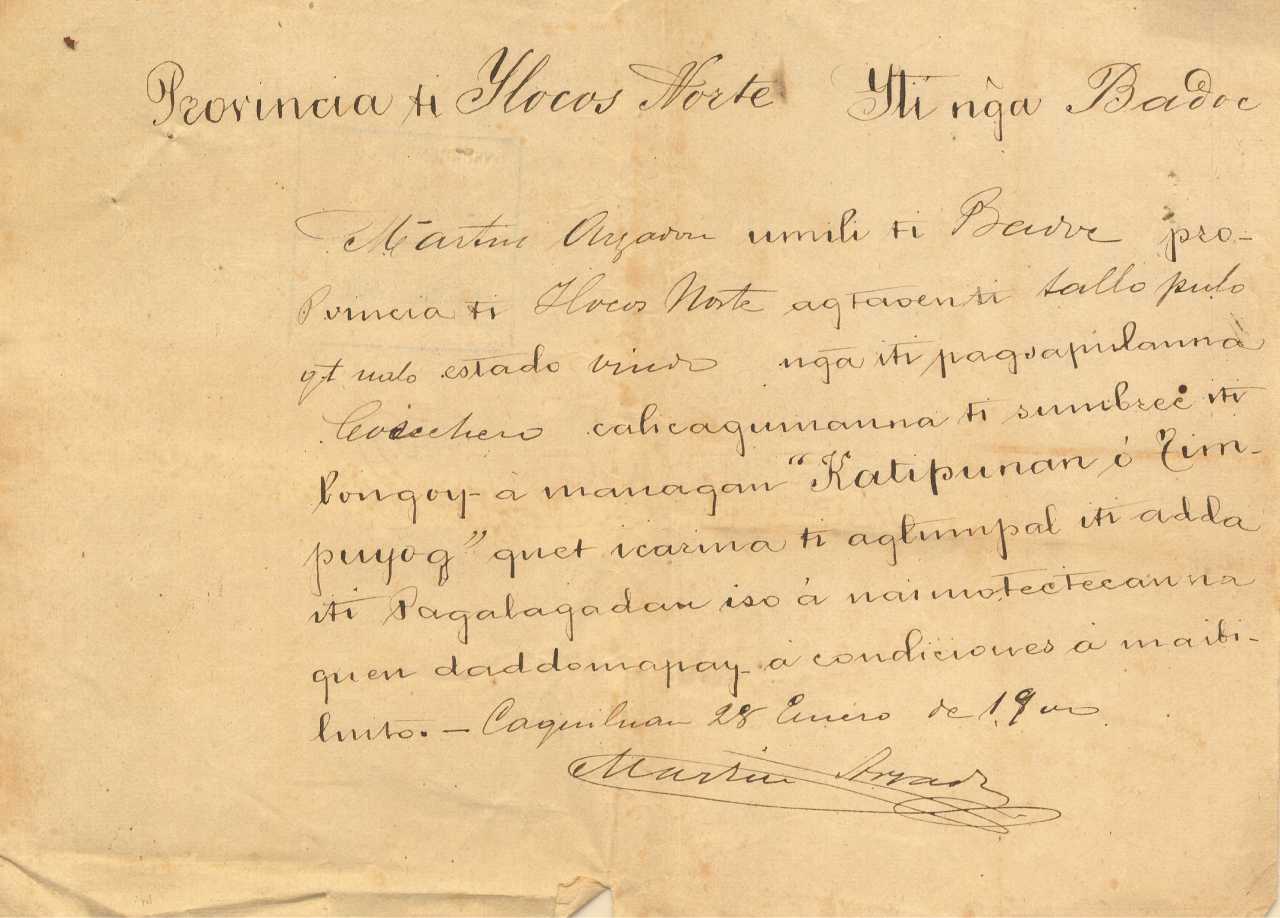 Provincia ti Ylocos Norte Yti ng̃a Badoc
Martin umili ti Badoc pro-
vincia ti Ilocos Norte agtaoen ti tallo pulo
qt ualo estado viudo ng̃a iti pagsapulanna
Cosechero calicagumanna ti sumbrec iti
bongoy à managan "Katipunan ó Tim-
puyog" quet icarina ti agtumpal iti adda
iti Pagalagadan iso á naimotectecanna
quen daddomapay à condiciones á maibi-
linto. — 28 Enero de 1900
Martin